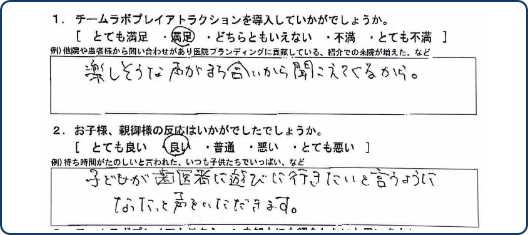 1. チームラボプレイアトラクションを導入していかがでしょうか。
[ とても満足 ・満足 ・どちらともいえない ・不満 ・とても不満 ]
例)他院や患者様から問い合わせがあり医院ブランディングに貢献している、紹介での来院が増えた、など
楽しそうな声がまち合いから聞こえてくるから。
2. お子様、親御様の反応はいかがでしたでしょうか。
[ とても良い 良い ・普通 ・悪い ・とても悪い ]
例)待ち時間がたのしいと言われた、いつも子供たちでいっぱい、など
子どもが歯医者に遊びに行きたいと言うように
なったと声をいただきます。